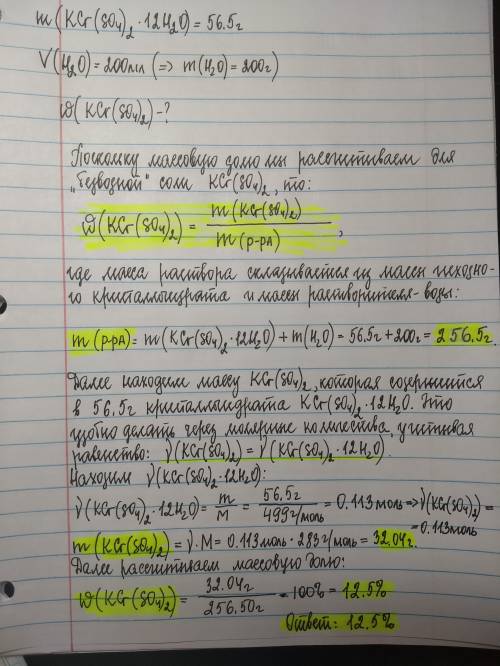 m(KCr(SO₄)₂·12H₂O)=56.5г
V(H₂O)=200мл (=> m(H₂O)=200г)
ω(KCr(SO₄)₂)-?
Поскольку массовую долю мы рассчитываем для
"безводной" соли KCr(SO₄)₂, то:
ω(KCr(SO₄)₂) = m(KCr(SO₄)₂) / m(р-ра),
где масса раствора складывается из массы исходно-
го кристаллогидрата и массы растворителя-воды:
m(р-ра)=m(KCr(SO₄)₂·12H₂O)+m(H₂O)=56.5г+200г=256.5г.
Далее находим массу KCr(SO₄)₂, которая содержится
в 56.5г кристаллогидрата KCr(SO₄)₂·12H₂O. Это
удобно делать через молярные количества, учитывая
равенство: ν(KCr(SO₄)₂)=ν(KCr(SO₄)₂·12H₂O).
Находим ν(KCr(SO₄)₂·12H₂O):
ν(KCr(SO₄)₂·12H₂O)= m/M = 56.5г / 499г/моль =0.113моль=>ν(KCr(SO₄)₂)=
=0.113моль
m(KCr(SO₄)₂)=ν·M=0.113моль·283г/моль=32.04г.
Далее рассчитываем массовую долю:
ω(KCr(SO₄)₂)= 32.04г / 256.50г ·100%=12.5%
Ответ: 12.5%